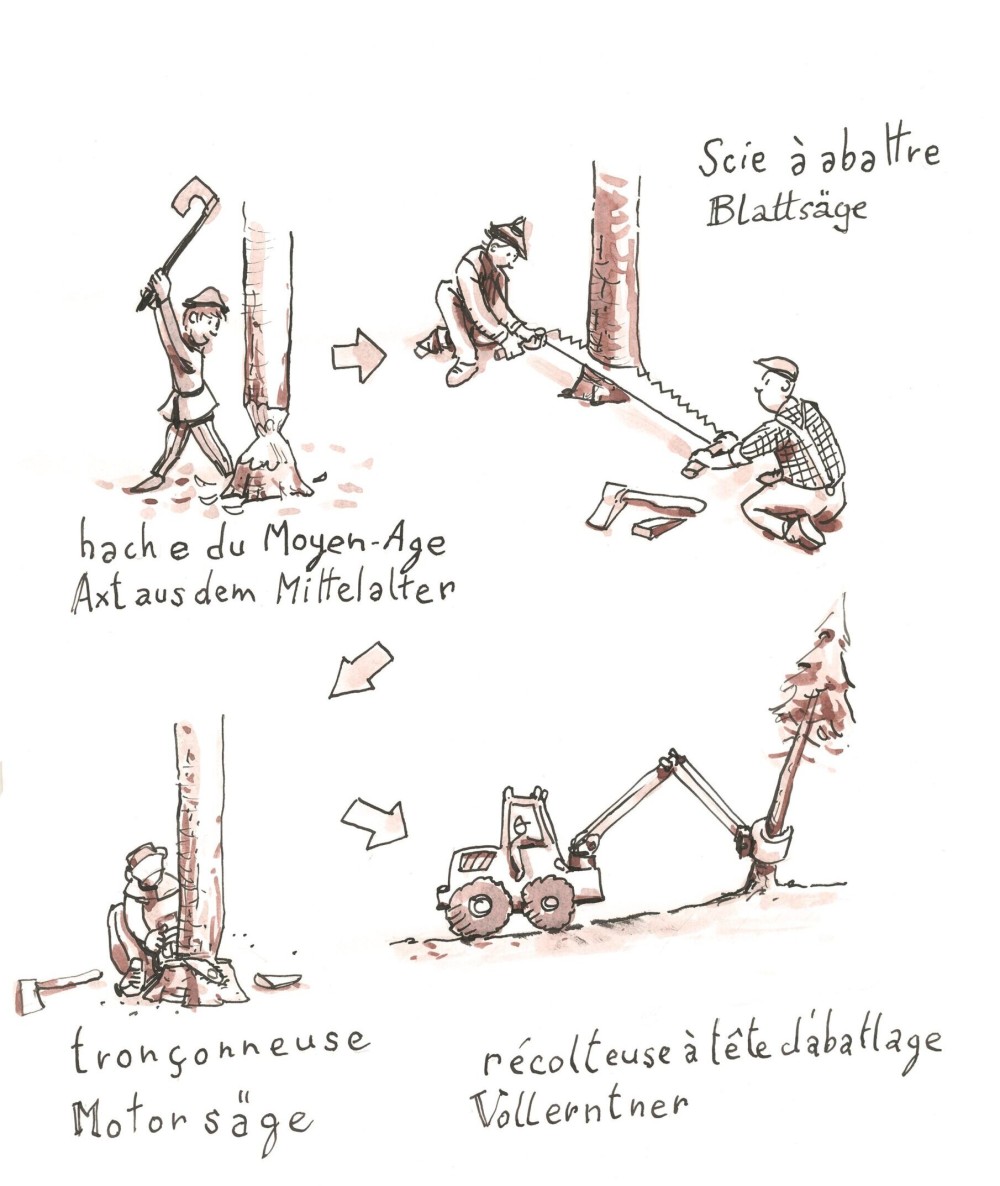 Scie à abattre
Blattsäge
hache du Moyen-Age
Axt aus dem Mittelalter
tronçonneuse
Motorsäge
récolteuse à tête d'abattage
Vollerntner